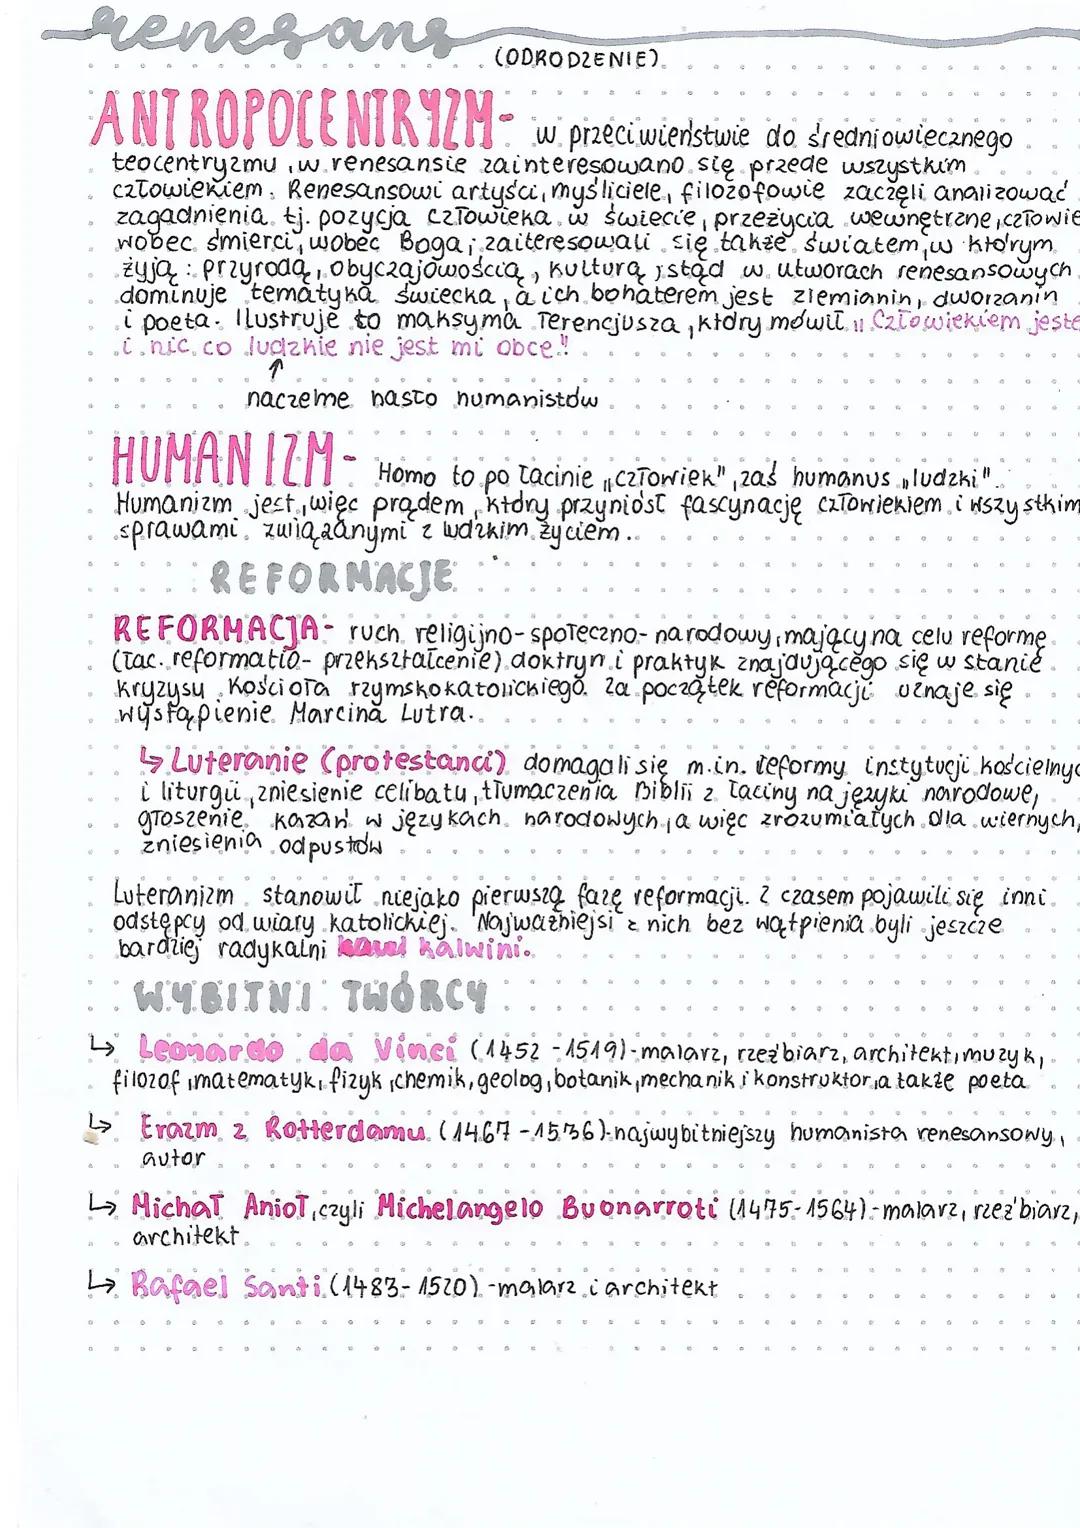 renesans
(ODRODZENIE)
ANTROPOCENTRYZM- w przeciwieństwie do średniowiecznego
teocentryzmu, w renesansie zainteresowano się przede wszystkim
człowiekiem. Renesansowi artyści, myśliciele, filozofowie zaczęli analizować
zagadnienia tj. pozycja człowieka w świecie, przeżycia wewnętrzne, człowie
wobec śmierci, wobec Boga; zaiteresowali się także światem, w którym
żyją: przyrodą, obyczajowością, kulturą; stąd w utworach renesansowych
dominuje tematyka świecka, a ich bohaterem jest ziemianin, dworzanin
i poeta. Ilustruje to maksyma Terencjusza, który mówił „Człowiekiem jeste
i nic co ludzkie nie jest mi obce!"
↑
naczelne hasło humanistów
HUMANIZM- Homo to po łacinie „człowiek", zaś humanus „ludzki".
Humanizm jest, więc prądem, który przyniósł fascynację człowiekiem i wszystkim
sprawami związanymi z ludzkim życiem.
REFORMACJE
REFORMACJA- ruch religijno-społeczno-narodowy, mający na celu reformę
(łac. reformatio- przekształcenie) doktryn i praktyk znajdującego się w stanie
kryzysu Kościoła rzymskokatolickiego. Za początek reformacji uznaje się
wystąpienie Marcina Lutra.
↳ Luteranie (protestanci) domagali się m.in. reformy instytucji kościelnyc
i liturgii, zniesienie celibatu, tłumaczenia Biblii z łaciny na języki narodowe,
głoszenie kazań w językach narodowych, a więc zrozumiałych dla wiernych,
zniesienia odpustów
Luteranizm stanowił niejako pierwszą fazę reformacji. Z czasem pojawili się inni
odstępcy od wiary katolickiej. Najważniejsi z nich bez wątpienia byli jeszcze
bardziej radykalni kalwini.
WYBITNI TWÓRCY
↳ Leonardo da Vinci (1452-1519)-malarz, rzeźbiarz, architekt, muzyk,
filozof, matematyk, fizyk, chemik, geolog, botanik, mechanik i konstruktor, a także poeta
↳ Erazm z Rotterdamu (1467-1536)-najwybitniejszy humanista renesansowy,
autor
↳ Michał Anioł, czyli Michelangelo Buonarroti (1475-1564)-malarz, rzeźbiarz,
architekt
↳ Rafael Santi (1483-1520)-malarz i architekt